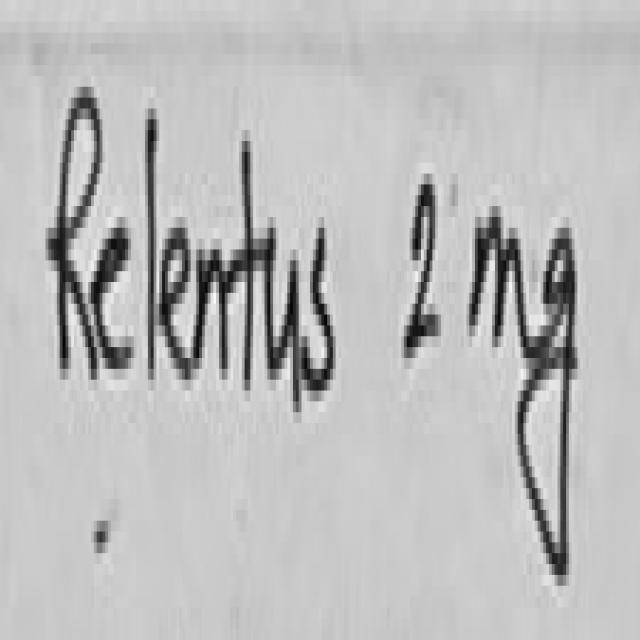 Relentus 2mg